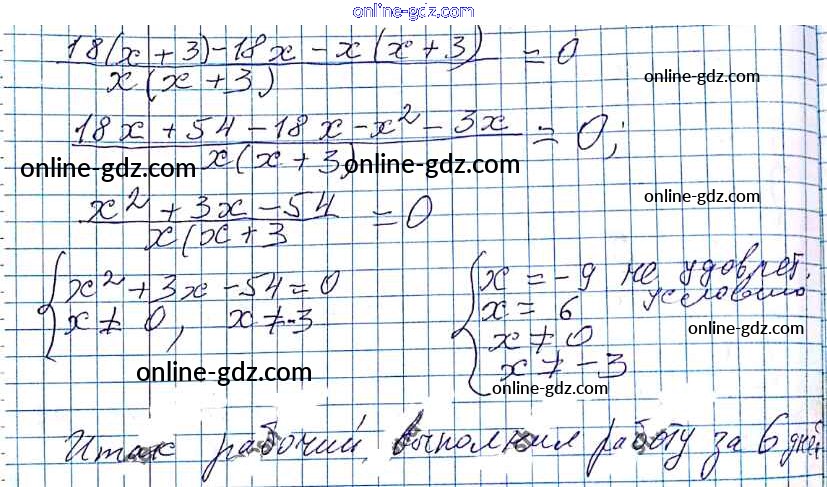 online-gdz.com
18(x+3)-18x-x(x+3) = 0
x(x+3)
online-gdz.com
18x+54-18x-x²-3x = 0;
x(x+3)
online-gdz.com online-gdz.com
online-gdz.com
x²+3x-54 = 0
x(x+3
x²+3x-54=0
x≠0, x≠-3
x=-9 не удовлет.
условию
x=6
x≠0
x≠-3
online-gdz.com
online-gdz.com
online-gdz.com
Итак рабочий выполнил работу за 6 дней